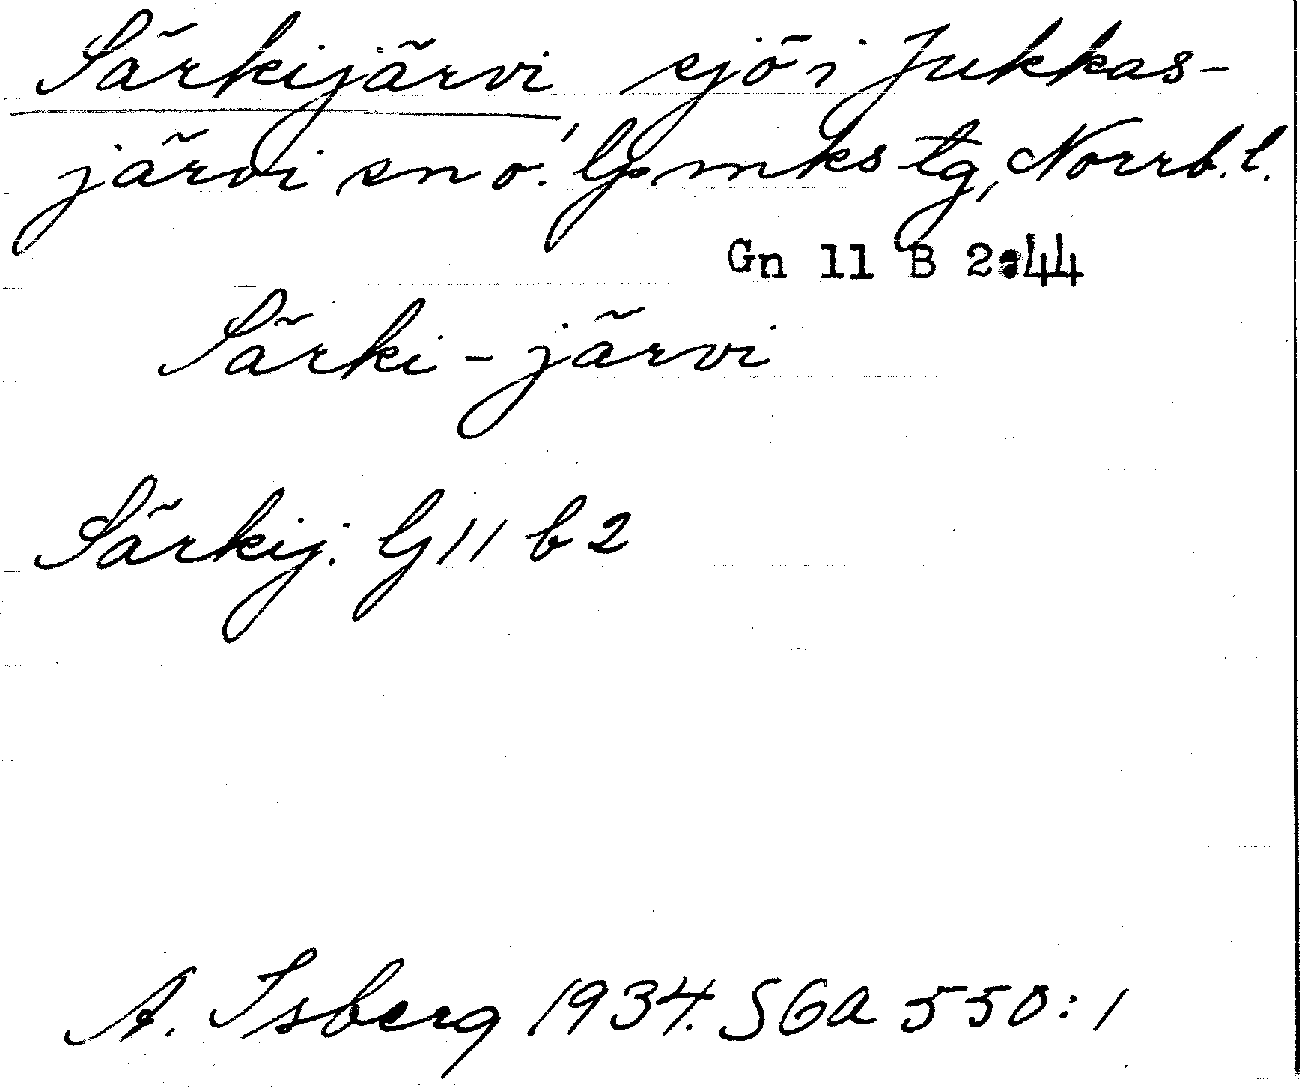 Särkijärvi, sjö i Jukkas-
järvi sn o. Gs. mks tg, Norrb. l.
Gn 11 B 2:44
Särki - järvi
Särkij. G 11 b 2
A. Isberg 1934. SGA 550:1